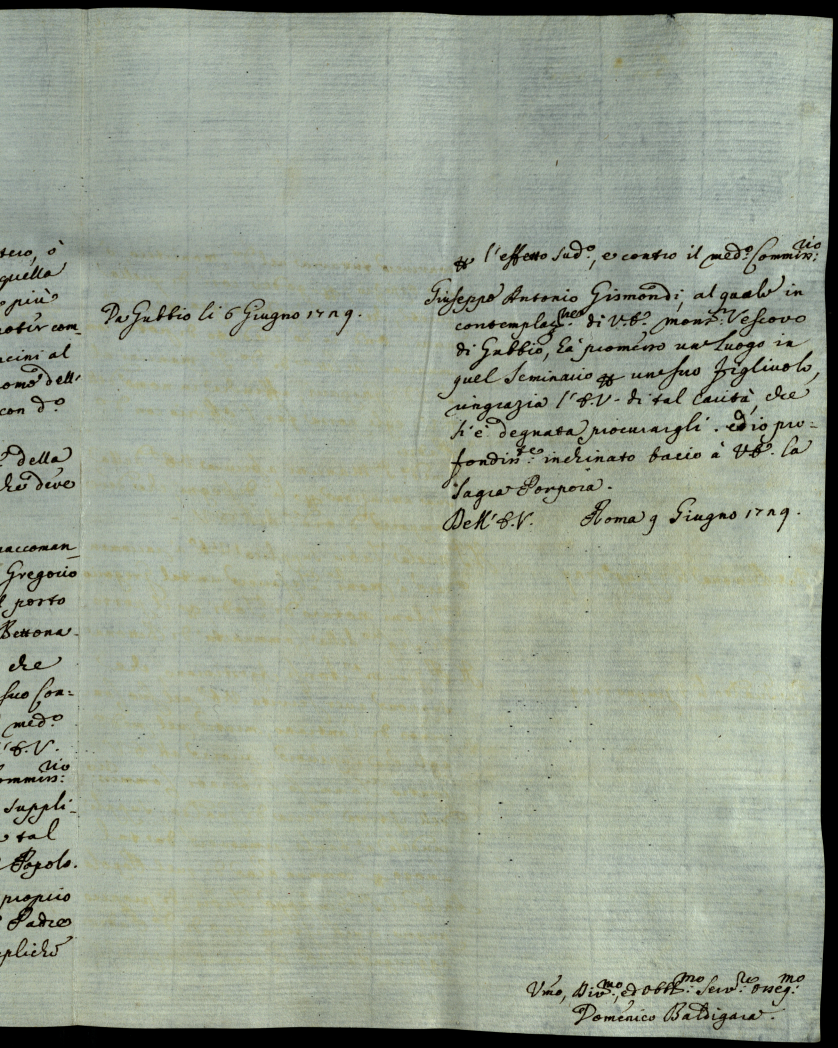 tero, ò
quella
più
poter com_
cini al
dell'
con d.º
della
che deve
raccoman_
Gregorio
porto
Bettona.
che
suo Con:
med.º
l'E.V.
Commiss:rio
suppli_
tal
Popolo.
proprio
Padre
Da Gubbio li 6 Giugno 1729.
l'effetto sud.º, e contro il med.º Commiss:rio
Giuseppe Antonio Gismondi, al quale in
contemplaz:ne di V.E. mons:r Vescovo
di Gubbio, hà promesso un Luogo in
quel Seminario un suo figlivolo,
ringrazia l'E.V. di tal carità, che
si è degnata procurargli. ed io pro=
fondiss:te inchinato bacio à V.E. la
Sagra Porpora.
Dell'E.V. Roma 9 Giugno 1729.
Vmo, Div:mo, ed Obb:mo Serv:re osseq:mo
Domenico Baldigara.